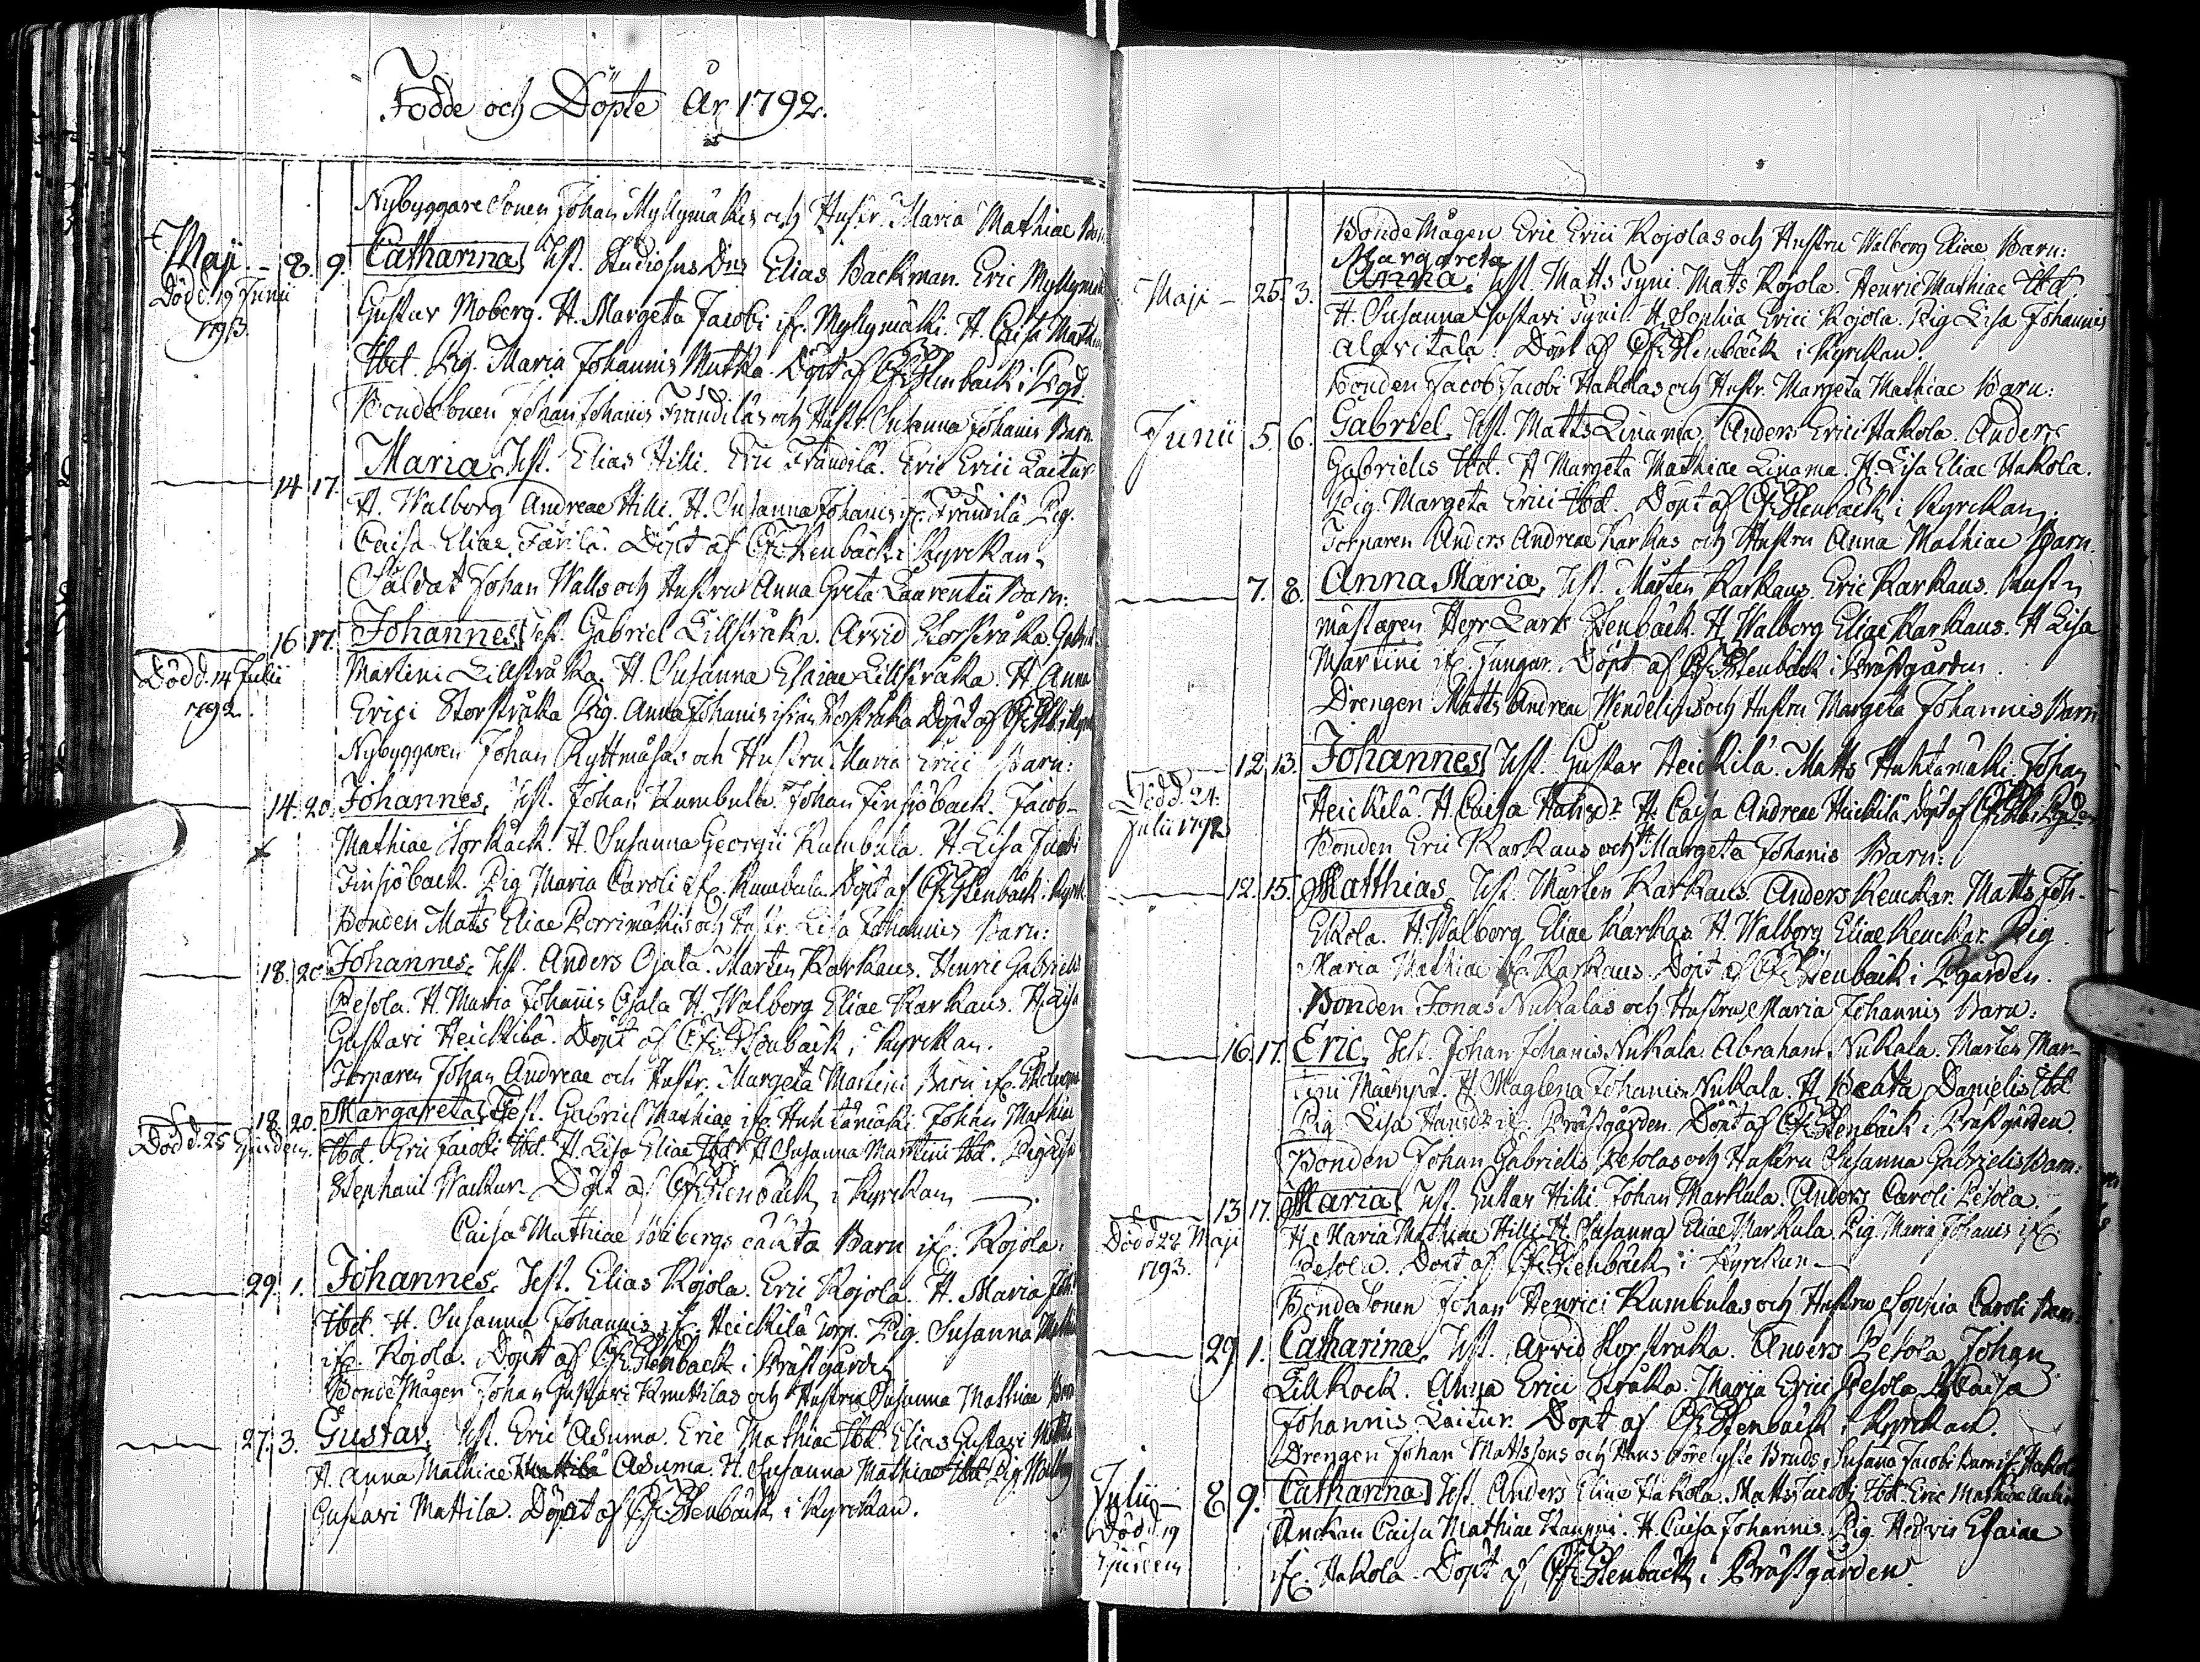 Födde och Döpte År 1792.
Nybyggare Sonen Johan Myllymäkis och Hustr. Maria Mathiae Barn
Maji. 8. 9. Catharina, Test. Studiosus Dns Elias Backman. Eric Myllymäki
Död d. 19 Junii 1793.
Gustav Moberg. H. Margeta Jacobi ifr. Myllymäki. H. Caisa Mathiae
Ibd. Pig. Maria Johannis Mutka. Döpt af CfrStenbäck i Pgd.
Bonde Sonen Johan Johanis Frändiläs och Hustr. Susanna Johanis Barn.
14 17. Maria, Test. Elias Hilli. Eric Frändilä. Eric Erici Laitur
H. Walborg Andreae Hilli. H. Susanna Johanis ifr. Frändilä Pig.
Caisa Eliae Färilä. Döpt af CfrStenbäck i Kyrckan.
Soldat Johan Walls och Hustru Anna Greta Laurentii Barn:
16 17. Johannes, Test. Gabriel Lillstråka. Arvid Storstråka. Gabriel
Död d. 14 Julii 1792.
Martini Lillstråka. H. Susanna Esaiae Lillstråka. H. Anna
Erici Storstråka Pig. Anna Johanis ifrån Storstråka Döpt af
Nybyggaren Johan Ryttmäsas och Hustru Maria Erici Barn:
14. 20. Johannes, Test. Johan Kumbula. Johan Finsjöback. Jacob
Mathiae Storkäck. H. Susanna Georgii Kumbula. H. Lisa Jacobi
Finsjöback. Pig Maria Caroli ifr. Kumbula. Döpt af CfrStenbäck i Kyrk.
Bonden Mats Eliae Porrimäkis och Hustr. Lisa Johannis Barn:
18. 20 Johannes, Test. Anders Ojala. Marten Karkaus. Henric Gabrielis
Pesola. H. Maria Johanis Ojala H. Walborg Eliae Karkaus. H. Lisa
Gustavi Heickilä. Döpt af CfrStenbäck i Kyrckan.
Torparen Johan Andreae och Hustr. Margeta Martini Barn ifr.
18. 20. Margareta, Test. Gabriel Mathiae ifr. Huhtamäki. Johan Mathiae
Död d. 25 Ejusdem.
Ibd. Eric Jacobi Ibd. H. Lisa Eliae Ibd. H Susanna Martini Ibd. Pig Lisa
Stephani Wackur. Döpt af CfrStenbäck i Kyrckan
Caisa Mathiae Wibergs oäckta Barn ifr. Rojola.
29. 1. Johannes, Test. Elias Rojola. Eric Rojola. H. Maria Joh.
Ibd. H. Susanna Johannis ifr. Heickilä Torp. Pig. Susanna Mathiae
ifr. Rojola. Döpt af CfrStenbäck i Prästgården
Bonde Mågen Johan Gustavi Knuttilas och Hustru Susanna Mathiae Barn
27. 3. Gustav, Test. Eric Asuma. Eric Mathiae Ibd. Elias Gustavi Mattila
H. Anna Mathiae Asuma. H. Susanna Mathiae Ibd. Pig. Walborg
Gustavi Mattila. Döpt af CfrStenbäck i Kyrckan.
Bonde Mågen Eric Erici Rojolas och Hustru Walborg Eliae Barn:
Margareta
Maji 25. 3. Anna, Test. Matts Syni. Mats Rojola. Henric Mathiae Ibd.
H. Susanna Gustavi Syni. H. Sophia Erici Rojola. Pig Lisa Johannis
Alavitala. Döpt af CfrStenbäck i Kyrckan.
Bonden Jacob Jacobi Hakolas och Hustr. Margeta Mathiae Barn:
Junii 5. 6. Gabriel, Test. Matts Linama. Anders Erici Hakola. Anders
Gabrielis Ibd. H Margeta Mathiae Linama. H Lisa Eliae Hakola.
Pig. Margeta Erici Ibd. Döpt af CfrStenbäck i Kyrckan.
Torparen Anders Andreae Karkas och Hustru Anna Mathiae Barn.
7. 8. Anna Maria, Test. Mårten Karkaus. Eric Karkaus.
mästaren Herr Lars Stenbäck. H. Walborg Eliae Karkaus. H Lisa
Martini ifr. Jungar. Döpt af CfrStenbäck i Prästgården.
Drengen Matts Andreae Wendelins och Hustru Margeta Johannis Barn
12 13. Johannes, Test. Gustav Heickilä. Matts Huhtamäki. Johan
Död d. 24. Julii 1792
Heickilä. H Caisa Hansdr. H. Caisa Andreae Heickilä Döpt af
Bonden Eric Karkaus och H Margeta Johanis Barn:
12. 15. Matthias, Test. Mårten Karkaus. Anders Keuckar. Matts Joh.
Ekola. H. Walborg Eliae Karkas. H. Walborg Eliae Keuckar. Pig.
Maria Mathiae ifr. Karkaus. Döpt af CfrStenbäck i Pgården.
Bonden Jonas Nukalas och Hustru Maria Johannis Barn:
16. 17. Eric, Test. Johan Johanis Nukala. Abraham Nukala. Marten Mar-
tini Maenpä. H. Maglena Johanis Nukala. H. Beata Danielis Ibd.
Pig. Lisa Hansdr. ifr. Prästgården. Döpt af CfrStenbäck i Prästgården.
Bonden Johan Gabrielis Pesolas och Hustru Susanna Gabrielis Barn.
13. 17. Maria, Test. Gustav Hilli. Johan Markula. Anders Caroli Pesola.
Död d 22 Maji 1793.
H. Maria Mathiae Hilli. H. Susanna Eliae Markula. Pig. Maria Johanis ifr.
Pesola. Döpt af CfrStenbäck i Kyrckan.
Bonde Sonen Johan Henrici Kumbulas och Hustru Sophia Caroli Barn.
29. 1. Catharina, Test. Arvid Storstråka. Anders Pesola. Johan
Lillkock. Anna Erici Stråka. Maria Erici Pesola. Caisa
Johannis Laitur. Döpt af CfrStenbäck i Kyrckan.
Drengen Johan Mattssons och Hans Brud Susana Jacobi Barn ifr. Hakola
Julii 8 9. Catharina, Test. Anders Eliae Hakola. Matts Jacobi Ibd. Eric Mathiae
Död d. 19 Ejusdem
Anckan Caisa Mathiae Kauppi. H. Caisa Johannis. Pig. Hedvis Esaiae
ifr. Hakola. Döpt af CfrStenbäck i Prästgården.